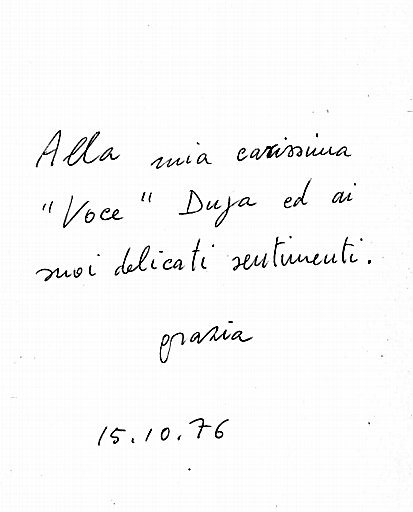 Alla mia carissima
"Voce" Duja ed ai
suoi delicati sentimenti.
grazia
15.10.76